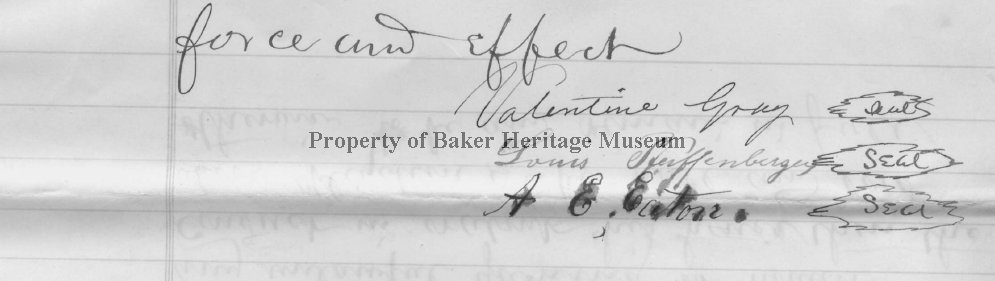 force and effect
Valentine Gray Seal
Property of Baker Heritage Museum
Louis Seal
A E. Eaton. Seal